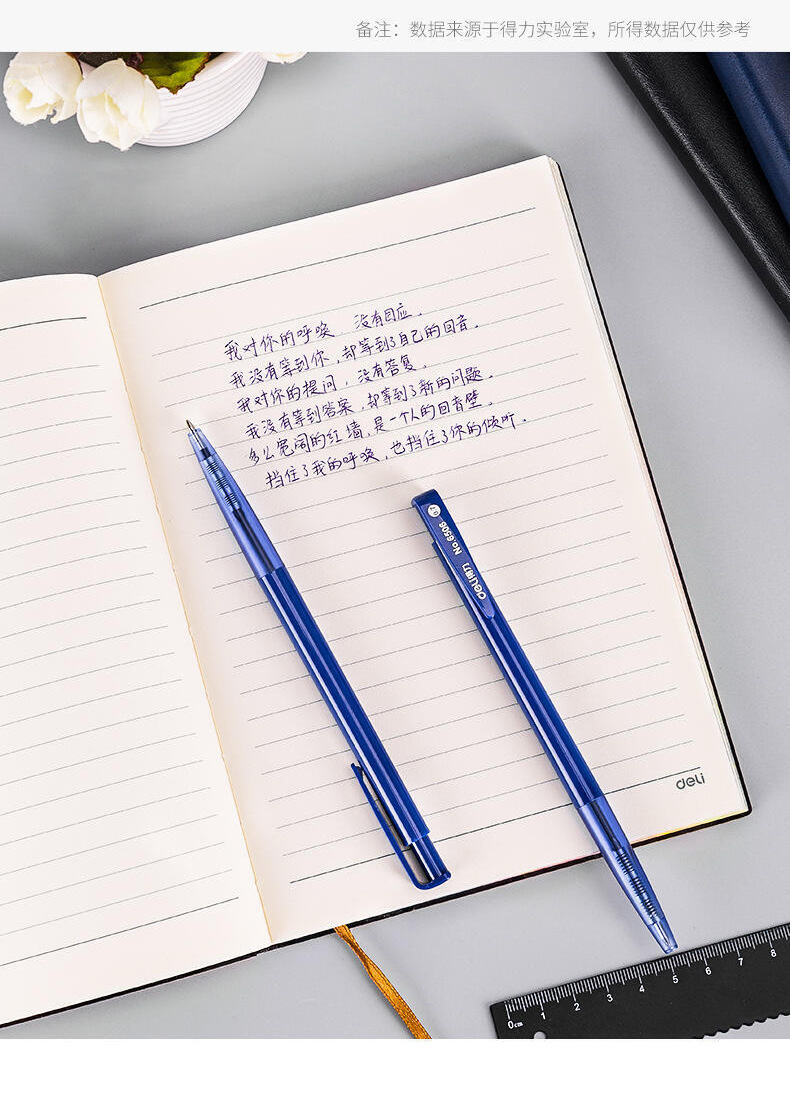 备注：数据来源于得力实验室，所得数据仅供参考
我对你的呼唤，没有回应。
我没有等到你，却等到了自己的回音。
我对你的提问，没有答复。
我没有等到答案，却等到了新的问题。
多么宽阔的红墙，是一个人的回音壁。
挡住了我的呼唤，也挡住了你的倾听。
No.6506
deli得力
deli
0cm 1 2 3 4 5 6 7 8